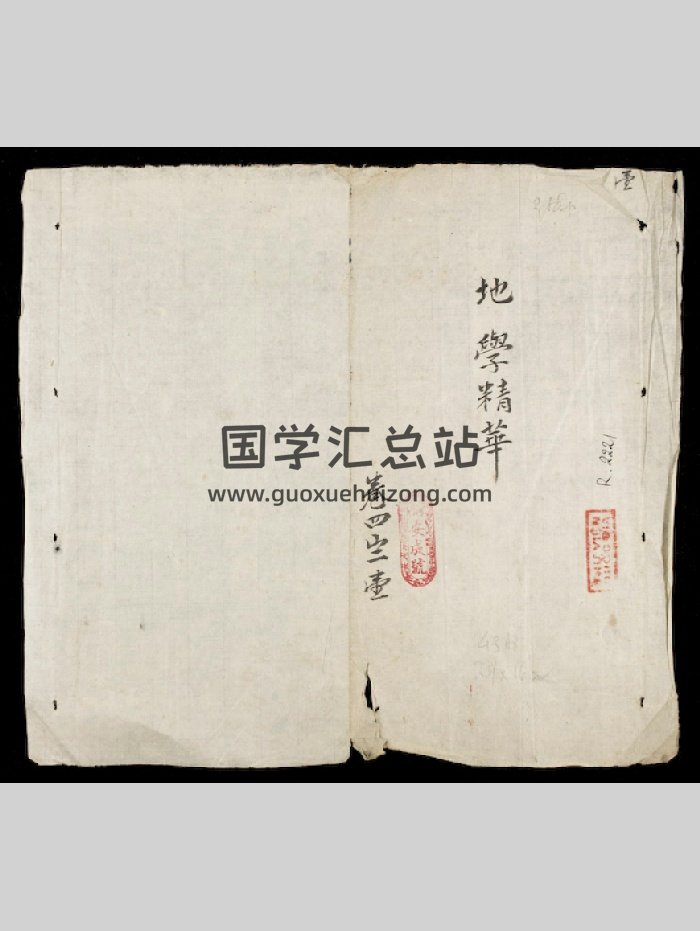 壹
地學精華
R.2221
卷四之壹
国学汇总站
www.guoxuehuizong.com